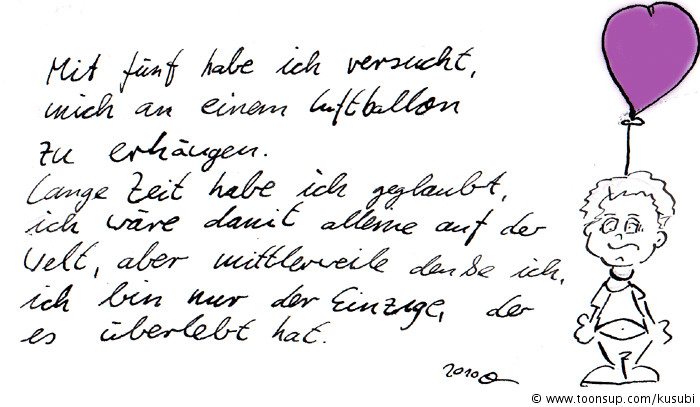 Mit fünf habe ich versucht,
mich an einem Luftballon
zu erhängen.
Lange Zeit habe ich geglaubt,
ich wäre damit alleine auf der
Welt, aber mittlerweile denke ich,
ich bin nur der Einzige, der
es überlebt hat.
2010
© www.toonsup.com/kusubi